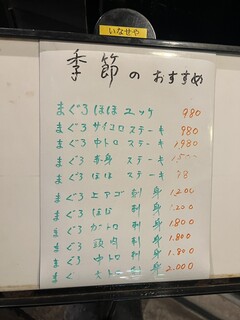 いなせや
季節のおすすめ
まぐろ ほほ ユッケ 980
まぐろ サイコロ ステーキ 980
まぐろ 中トロ ステーキ 1,980
まぐろ ステーキ
まぐろ ほほ ステーキ
まぐろ 上アゴ 刺身 1,200
まぐろ ほほ 刺身 1,200
まぐろ 刺身 1,800
まぐろ 頭肉 刺身 1,800
まぐろ 中トロ 刺身 1,800
まぐ 大トロ 刺身 2,000